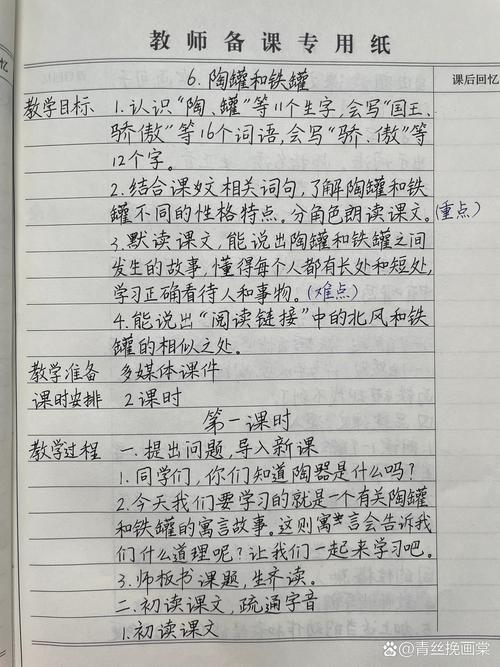 教师备课专用纸
6. 陶罐和铁罐
课后回忆
教学目标 1. 认识“陶、罐”等11个生字，会写“国王、
骄傲”等16个词语，会写“骄、傲”等
12个字。
2. 结合课文相关词句，了解陶罐和铁
罐不同的性格特点。分角色朗读课文。(重点)
3. 默读课文，能说出陶罐和铁罐之间
发生的故事，懂得每个人都有长处和短处，
学习正确看待人和事物。(难点)
4. 能说出“阅读链接”中的北风和铁
罐的相似之处。
教学准备 多媒体课件
课时安排 2课时
第一课时
教学过程 一. 提出问题，导入新课
1. 同学们，你们知道陶器是什么吗？
2. 今天我们要学习的就是一个有关陶罐
和铁罐的寓言故事。这则寓言会告诉我
们什么道理呢？让我们一起来学习吧。
3. 师板书课题，生齐读。
二. 初读课文，疏通字音
1. 初读课文
头条 @青丝挽画棠